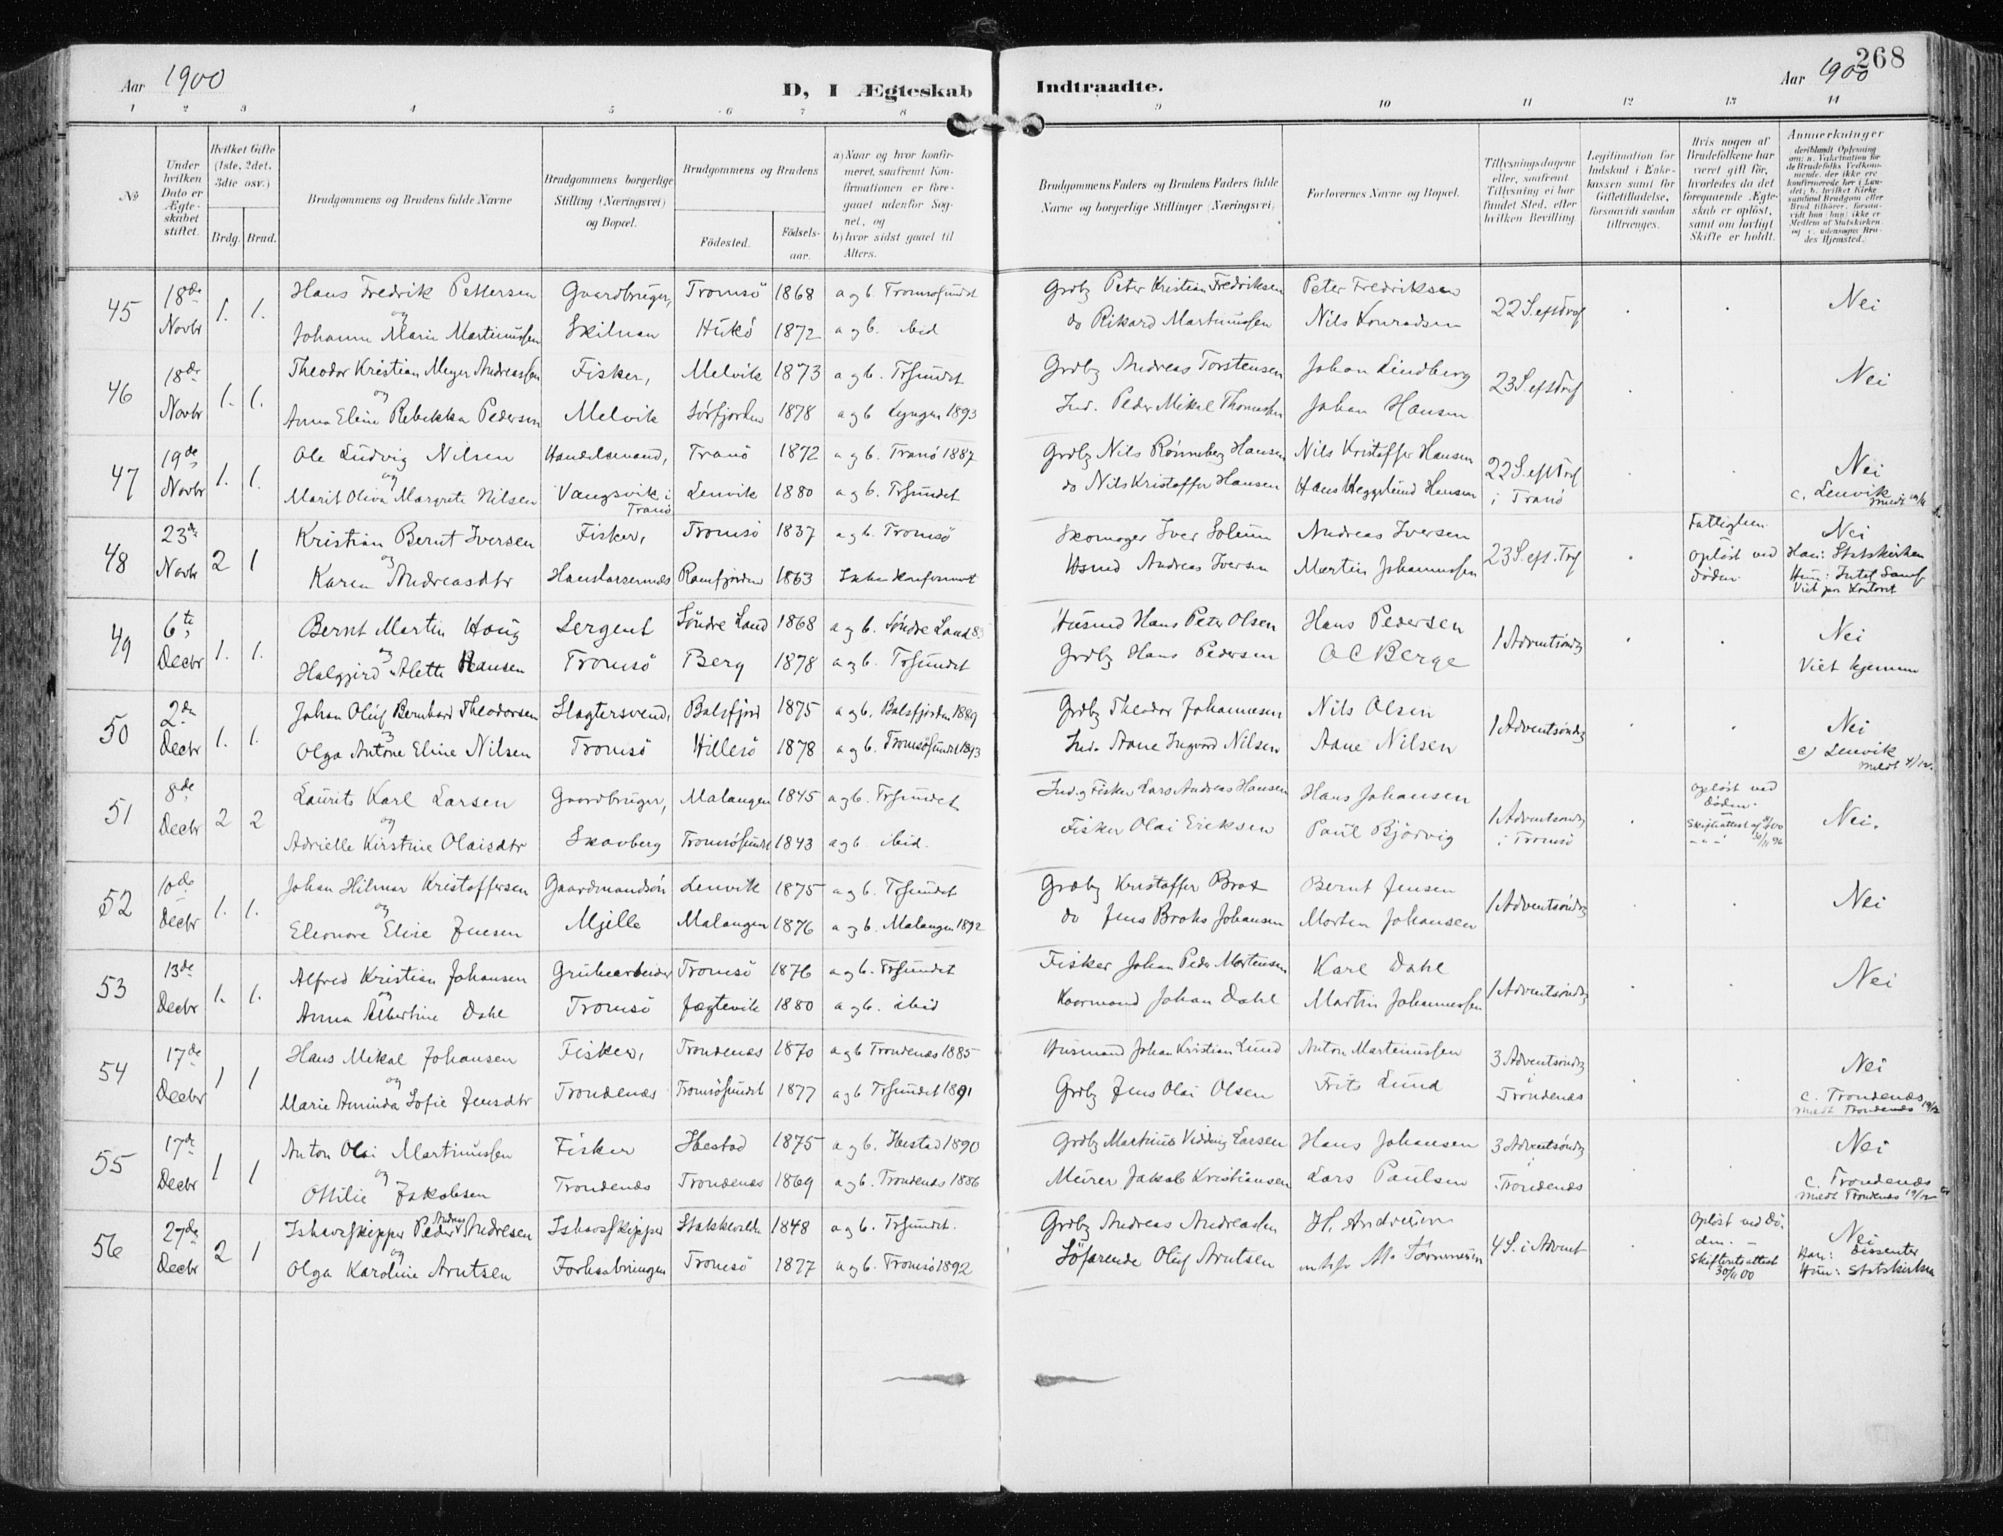 268
Aar 1900
D, I Ægteskab
Indtraadte.
Aar 1900
1 2 3 4 5 6 7 8 9 10 11 12 13 14
No
Under hvilken Dato er Ægteskabet stiftet.
Hvilket Gifte (1ste, 2det, 3die osv.)
Brdg. Brud.
Brudgommens og Brudens fulde Navne
Brudgommens borgerlige Stilling (Næringsvei) og Bopæl.
Brudgommens og Brudens
Fødested.
Fødselsaar.
a) Naar og hvor konfirmeret, saafremt Konfirmationen er foregaaet udenfor Sognet, og
b) hvor sidst gaaet til Alters.
Brudgommens Faders og Brudens Faders fulde Navne og borgerlige Stillinger (Næringsvei)
Forlovernes Navne og Bopæl.
Tillysningsdagene eller, saafremt Tillysning ei har fundet Sted, efter hvilken Bevilling
Legitimation for Indskud i Enkekassen samt for Giftetilladelse, forsaavidt saadan tiltrænges.
Hvis nogen af Brudefolkene har været gift før, hvorledes da det foregaaende Ægteskab er opløst, samt om lovligt Skifte er holdt.
Anmerkninger
45 18de Novbr 1. 1. Hans Fredrik Pettersen Gaardbruger, Tromsö 1868 a og b. Tromsøsundet Grdbg Peter Kristian Fredriksen Peter Fredriksen 22 S. eft Trf Nei
og Johanna Marie Martinussen Skilman 1872 a og b. ibid do Rikard Martinussen Nils Konradsen
46 18de Novbr 1. 1. Theodor Kristian Meyer Andreassen Fisker, Melvik 1873 a og b. Trsundet Grdbg Andreas Torstensen Johan Lindberg 23 S. eft Trf Nei
og Anna Eline Rebekka Pedersen Melvik Sørfjorden 1878 a og b Lyngen 1893 Ind. Peder Mikal Thomassen Johan Hansen
47 19de Novbr 1. 1. Ole Ludvig Nilsen Handelsmand, Tranö 1872 a og b. Tranö 1887 Grdbg Nils Rønneberg Hansen Nils Kristoffer Hansen 22 S. eft Trf Nei
og Marit Oliva Margrete Nilsen Vangsvik i Tranö Lenvik 1880 a og b. Trsundet do Nils Kristoffer Hansen Hans Heggelund Hansen i Tranö c. Lenvik
48 23de Novbr 2 1 Kristian Bernt Iversen Fisker, Tromsö 1837 a og b. Tromsö Skomager Iver Andreas Iversen 23 S. eft. Trf opløst ved døden Nei
og Karen Andreasdtr Hanslarsernæs Ramfjorden 1863 Ikke konfirmert Husmd Andreas Iversen Martin Johannessen Han: Statskirken
49 6te Decbr 1. 1. Bernt Martin Houg Sergent Søndre Land 1868 a og b. Søndre Land 83 Husmd Hans Peter Olsen Hans Pedersen 1 Adventsøndg Nei
og Alette Hansen Tromsö Berg 1878 a og b. Trsundet Grdbg Hans Pedersen O C Berge Viet hjemme
50 2den Decbr 1. 1. Johan Oluf Bernhard Theodorsen Slagtersvend, Balsfjord 1875 a og b. Balsfjorden 1889 Grdbg Theodor Johannesen Nils Olsen 1 Adventsøndg Nei
og Olga Antone Eline Nilsen Tromsö Hillesö 1878 a og b. Tromsøsundet 1893 Ind. Aane Ingvard Nilsen Aane Nilsen c) Lenvik
51 8de Decbr 2 2 Laurits Karl Larsen Gaardbruger, Malangen 1845 a og b. Trsundet Ind. og Fisker Lars Andreas Hansen Hans Johansen 1 Adventsøndg opløst ved døden. Nei.
og Adrielle Kirstine Olaisdtr Skavberg Tromsøsundet 1843 a og b. ibid. Fisker Olai Eriksen Paul Bjørvig i Tromsö
52 10de Decbr 1. 1. Johan Hilmar Kristoffersen Gaardmandsøn Lenvik 1875 a og b. Trsundet Grdbg Kristoffer Brox Bernt Jensen 1 Adventsøndg Nei
og Eleonore Elise Jensen Mjelle Malangen 1876 a og b. Malangen 1892 do Jens Broks Johansen Morten Johansen
53 13de Decbr 1. 1. Alfred Kristian Johansen Grubearbeider Tromsö 1876 a og b. Trsundet Fisker Johan Peder Mortensen Karl Dahl 1 Adventsøndg Nei
og Anna Albertine Dahl Tromsö Jægtevik 1880 a og b. ibid Johan Dahl Martin Johannessen
54 17de Decbr 1 1 Hans Mikal Johansen Fisker, Trondenæs 1870 a og b Trondenæs 1885 Husmand Johan Kristian Lund Anton Martinussen 3 Adventsøndg Nei
og Marie Aminda Sofie Jensdtr Trondenæs Tromsøsundet 1877 a og b Trsundet 1891 Grdbg Jens Olai Olsen Frits Lund i Trondenæs c. Trondenæs
55 17de Decbr 1 1 Anton Olai Martinussen Fisker Ibestad 1875 a og b. Ibestad 1890 Grdbg Martinus Vidding Larsen Hans Johansen 3 Adventsøndg Nei
og Ottilie Jakobsen Trondenæs Trondenæs 1869 a og b. Trondenæs 1886 Murer Jakob Kristiansen Lars Paulsen i Trondenæs c. Trondenæs
56 27de Decbr 2 1 Ishavsskipper Peder Andreas Andresen Ishavsskipper 1848 a og b. Trsundet. Grdbg Andreas Andreassen 4 S. i Advent opløst ved døden. Nei
og Olga Karoline Arntsen Tromsö 1877 a og b. Tromsö 1892 Søfarende Oluf Arntsen Skifteretsattest 30/11 00 Han: Dissenter
Hun: Statskirken